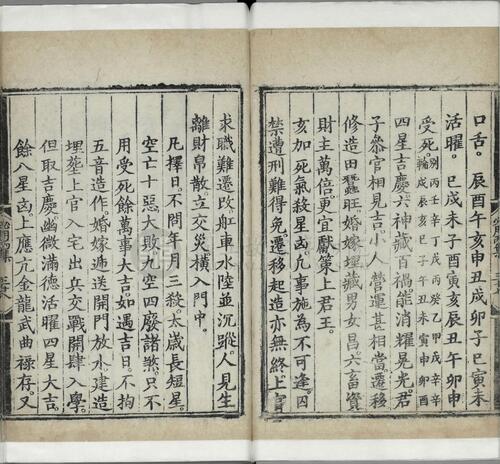 口舌。辰酉午亥申丑戌卯子巳寅未
活曜。巳戌未子酉寅亥辰丑午卯申
受死。
戌辰亥巳子午丑未寅申卯酉
四星吉慶六神藏百禍能消耀晃光。君
子參官相見吉小人營運甚相當遷移
修造田蠶旺。婚嫁埋藏男女昌。六畜資
財主萬倍更宜獻策上君王。
亥加死氣殺星凶凡事施為不可逢。囚
禁遭刑難得免遷移起造亦無終。上官
求職難遷改。舡車水陸並沉蹤。人見生
離財帛散立交災橫入門中。
凡擇日。不問年月三殺。太歲長短星。
空亡十惡大敗九空四廢諸煞。只不
用受死餘萬事大吉。如遇吉日。不拘
五音造作。婚嫁遞送開門放水建造
埋塟上官入宅出兵交戰開肆入學。
但取吉慶。幽微滿德活曜四星大吉。
餘八星凶。上應亢金龍武曲祿存。又